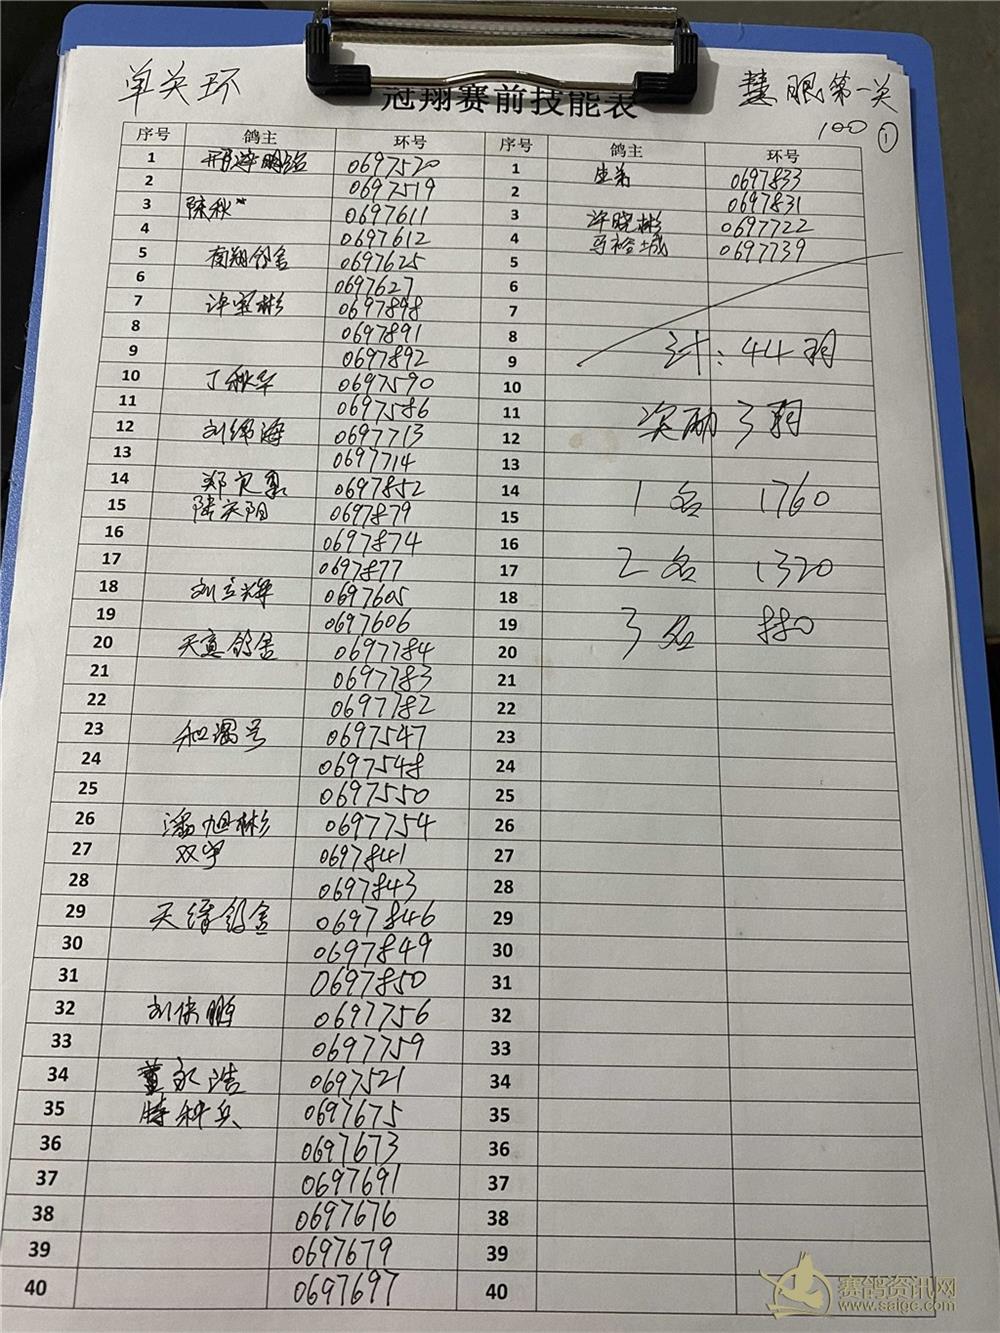 单关环
慧眼第一关
冠翔赛前技能表
100 ①
序号 鸽主 环号
1 0697520
2 0697519
3 陈秋 0697611
4 0697612
5 南翔鸽舍 0697625
6 0697627
7 许宝彬 0697898
8 0697891
9 0697892
10 丁秋华 0697590
11 0697586
12 刘绵海 0697713
13 0697714
14 0697852
15 陆庆阳 0697879
16 0697874
17 0697877
18 刘立辉 0697605
19 0697606
20 天意鸽舍 0697784
21 0697783
22 0697782
23 0697547
24 0697548
25 0697550
26 潘旭彬 0697754
27 双宇 0697841
28 0697843
29 天缘鸽舍 0697846
30 0697849
31 0697850
32 刘侠鹏 0697756
33 0697759
34 董永浩 0697521
35 特种兵 0697675
36 0697673
37 0697691
38 0697676
39 0697679
40 0697697
序号 鸽主 环号
1 0697833
2 0697831
3 许晓彬 0697722
4 马裕城 0697739
5
6
7
8
9
10
11
12
13
14
15
16
17
18
19
20
21
22
23
24
25
26
27
28
29
30
31
32
33
34
35
36
37
38
39
40
计:44羽
奖励3羽
1名 1760
2名 1320
3名 880
赛鸽资讯网
www.saige.com